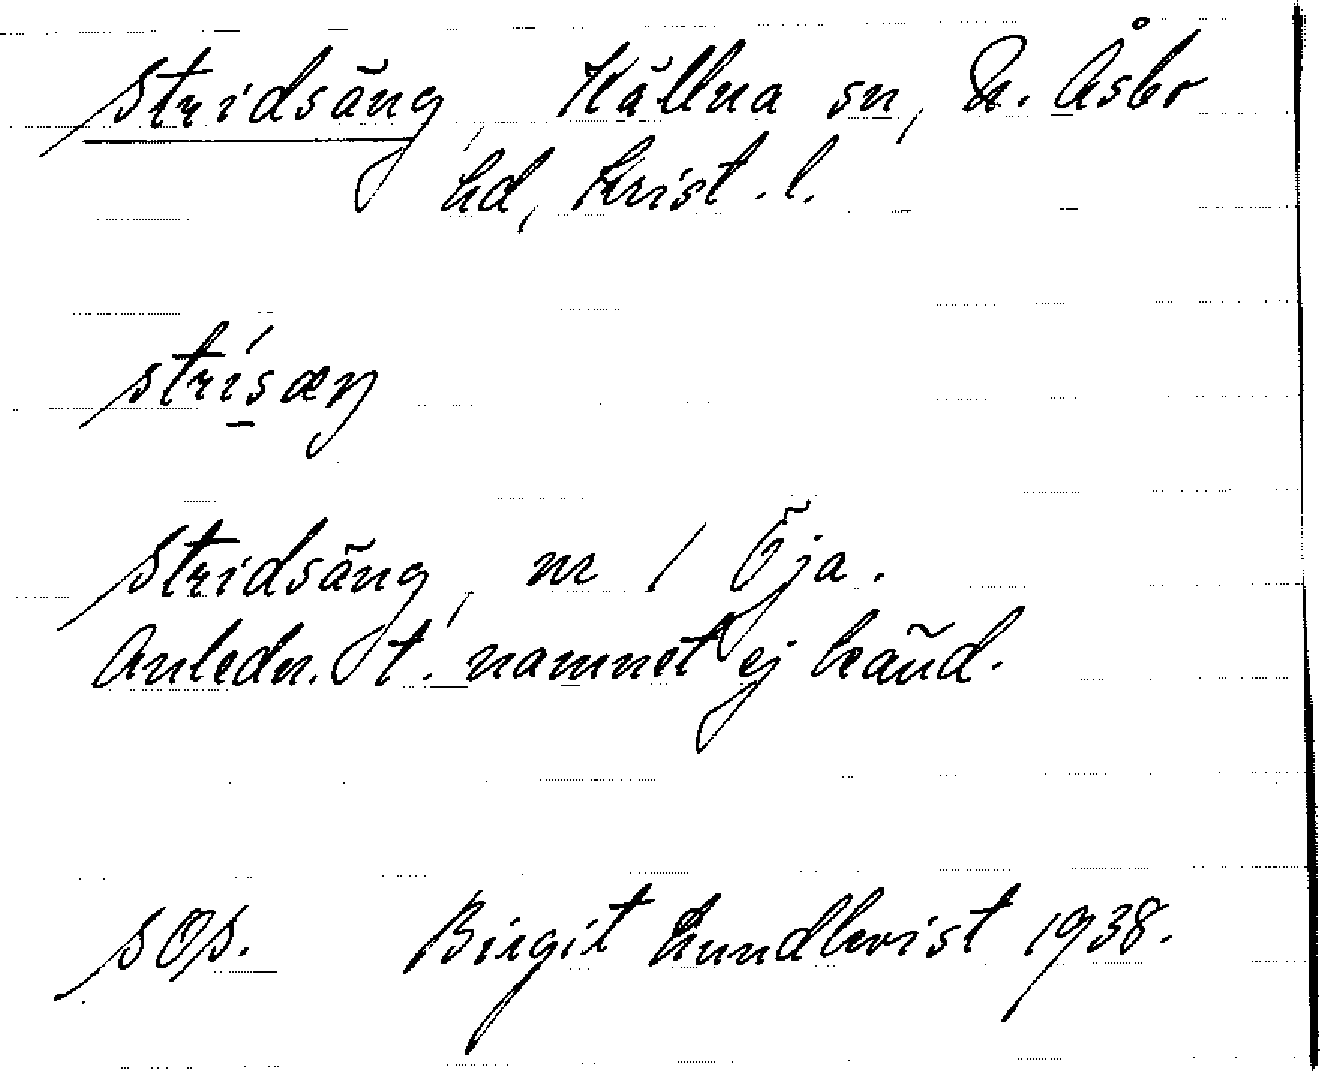 Stridsäng, Källna sn, N. Åsbo
hd, Krist. l.
strísæŋ
Stridsäng, nr 1 Öja.
Anledn. t. namnet ej känd.
sOp. Birgit Lundkvist 1938.